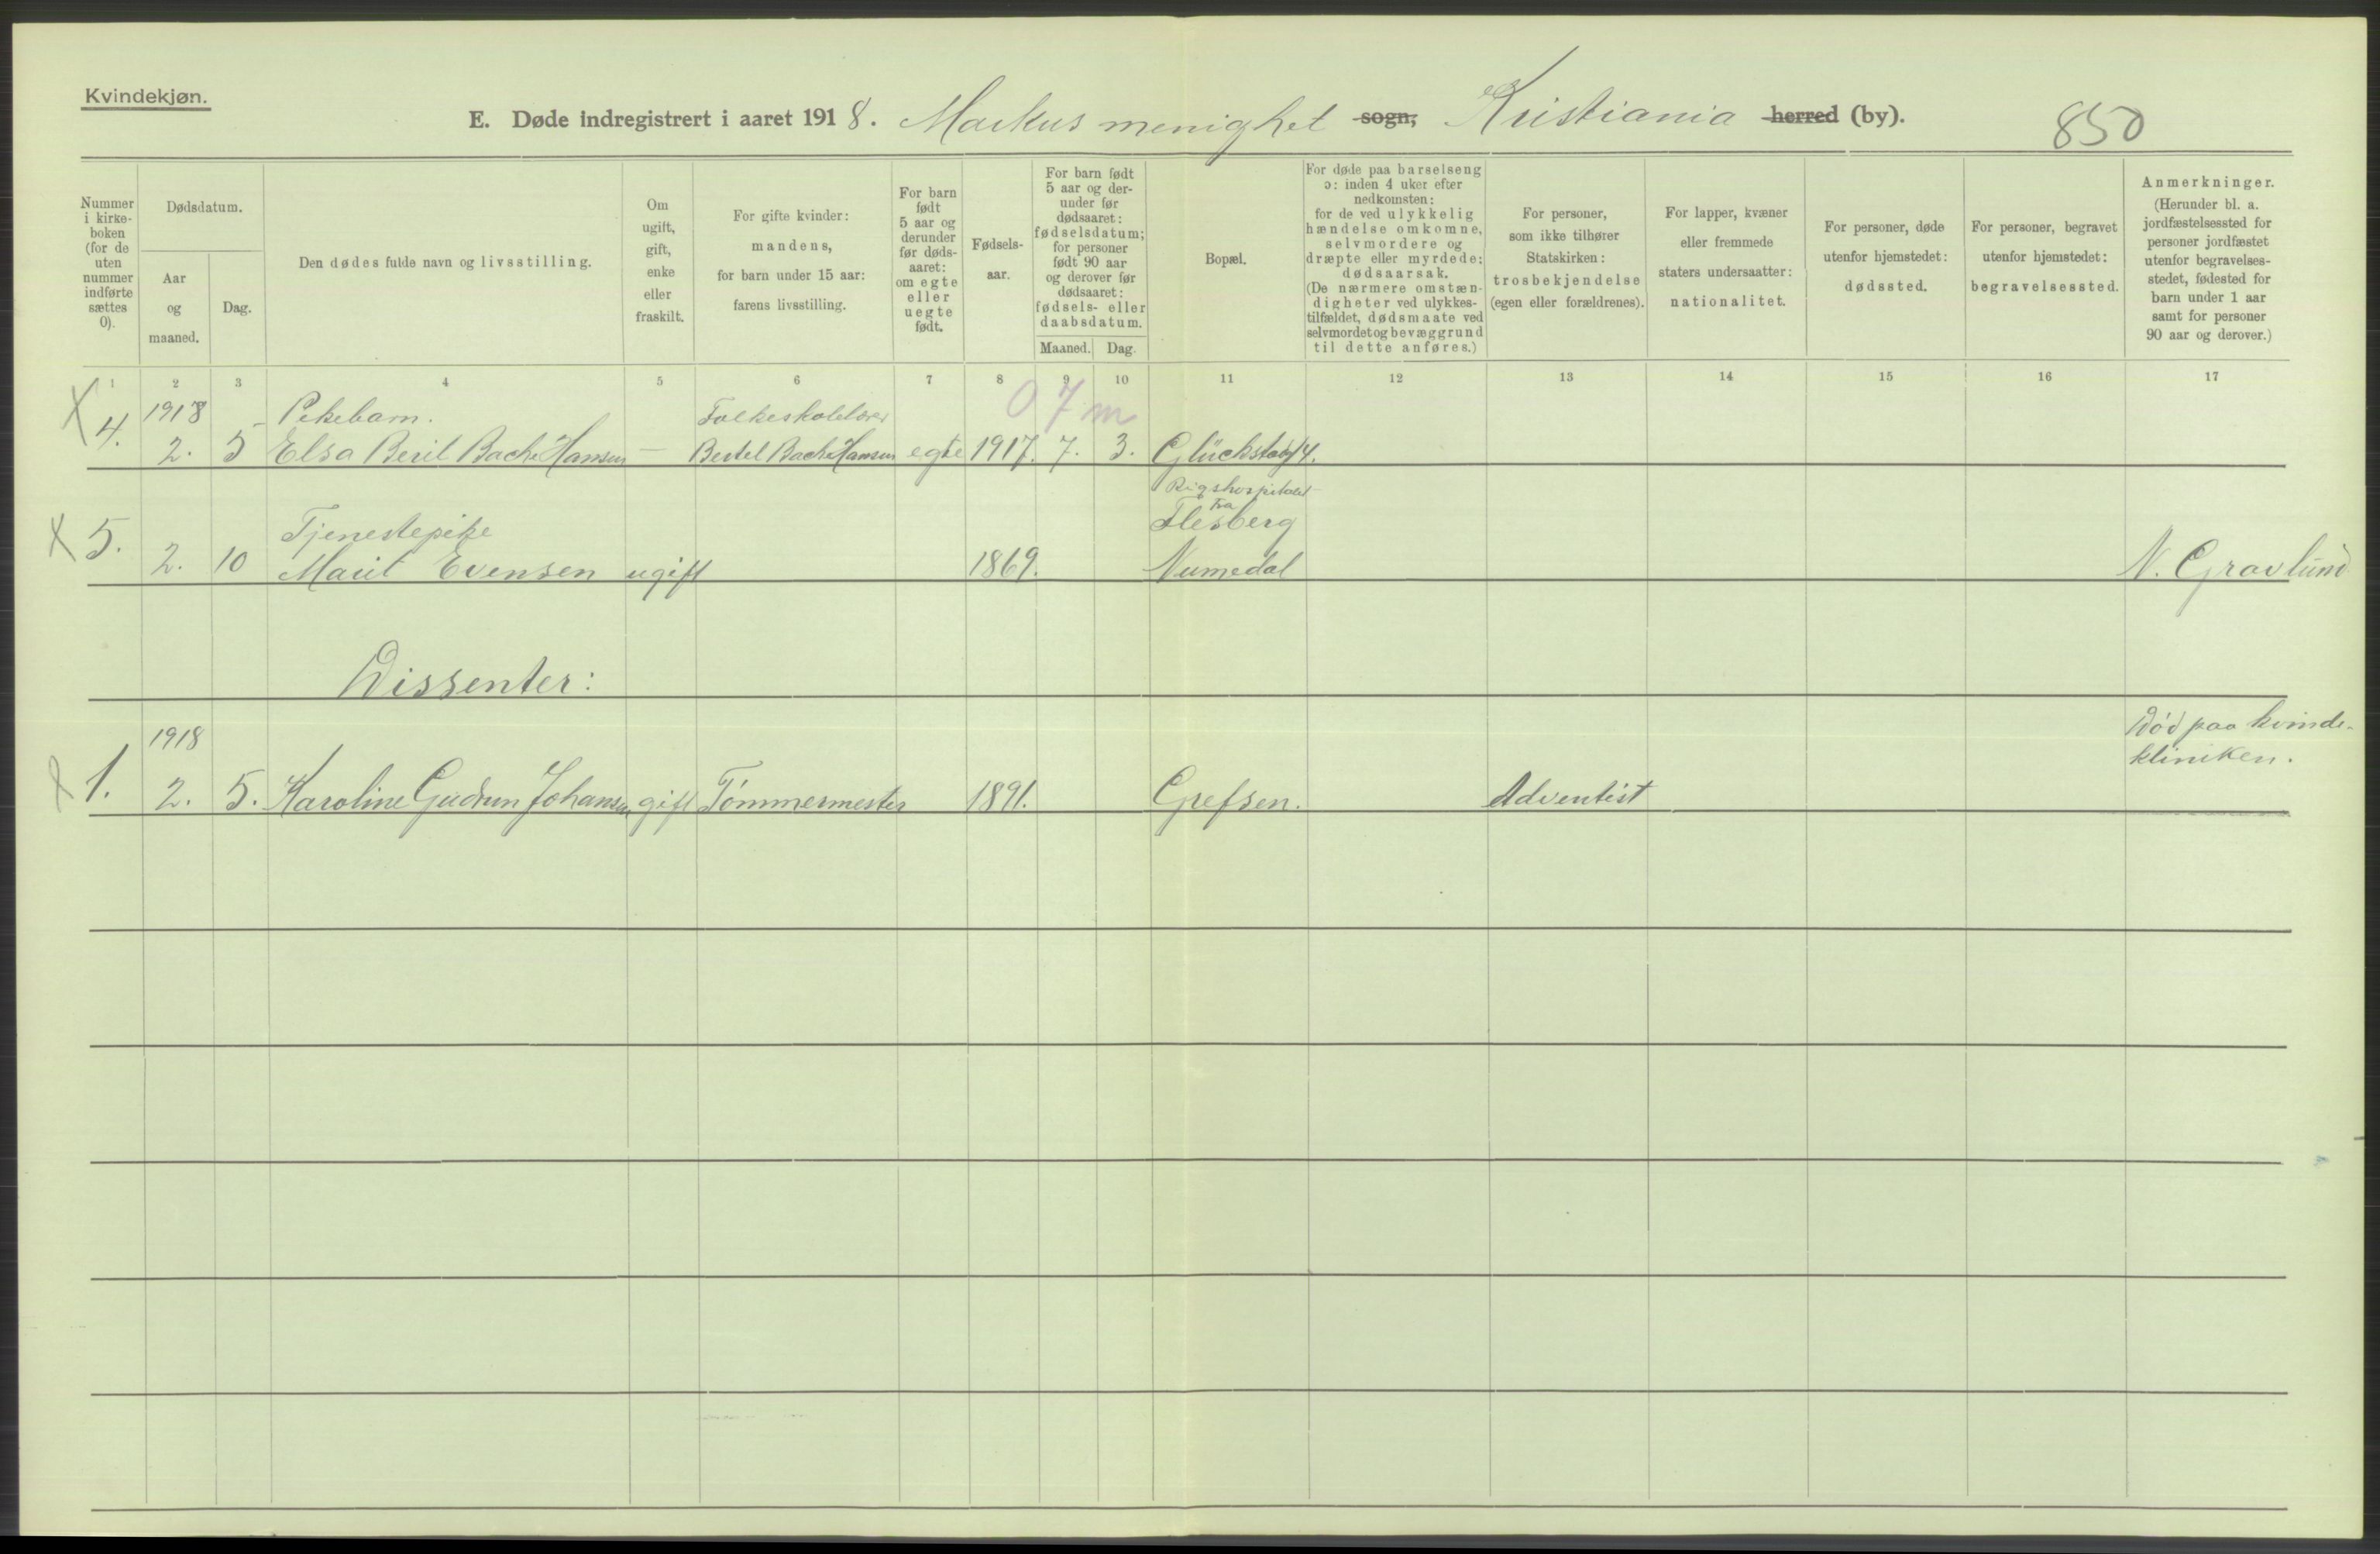 Kvindekjøn.
E. Døde indregistrert i aaret 1918. Markus menighet sogn, Kristiania herred (by). 850
Nummer
i kirke-
boken
(for de
uten
nummer
indførte
sættes
0).
Dødsdatum.
Aar
og
maaned.
Dag.
Den dødes fulde navn og livsstilling.
Om
ugift,
gift,
enke
eller
fraskilt.
For gifte kvinder:
mandens,
for barn under 15 aar:
farens livsstilling.
For barn
født
5 aar og
derunder
før døds-
aaret:
om egte
eller
uegte
født.
Fødsels-
aar.
For barn født
5 aar og der-
under før
dødsaaret:
fødselsdatum;
for personer
født 90 aar
og derover før
dødsaaret:
fødsels- eller
daabsdatum.
Maaned. Dag.
Bopæl.
For døde paa barselseng
ɔ: inden 4 uker efter
nedkomsten:
for de ved ulykkelig
hændelse omkomne,
selvmordere og
dræpte eller myrdede:
dødsaarsak.
(De nærmere omstæn-
digheter ved ulykkes-
tilfældet, dødsmaate ved
selvmordet og bevæggrund
til dette anføres.)
For personer,
som ikke tilhører
Statskirken:
trosbekjendelse
(egen eller forældrenes).
For lapper, kvæner
eller fremmede
staters undersaatter:
nationalitet.
For personer, døde
utenfor hjemstedet:
dødssted.
For personer, begravet
utenfor hjemstedet:
begravelsessted.
Anmerkninger.
(Herunder bl. a.
jordfæstelsessted for
personer jordfæstet
utenfor begravelses-
stedet, fødested for
barn under 1 aar
samt for personer
90 aar og derover.)
1 2 3 4 5 6 7 8 9 10 11 12 13 14 15 16 17
X 1918 Pikebarn. Folkeskolelærer 0 7 m
4. 2. 5 Elsa Beril Bache Hansen — Bertel Bache Hansen egte 1917. 7. 3. Glückstadgt 4.
Rigshospitalet
Fra
X 5. Tjenestepike Flesberg
2. 10 Marit Evensen ugift 1869. Numedal N. Gravlund
Dissenter:
1918 Død paa kvinde-
kliniken.
X 1. 2. 5. Karoline Gudrun Johansen gift Tømmermester 1891. Grefsen. Adventist